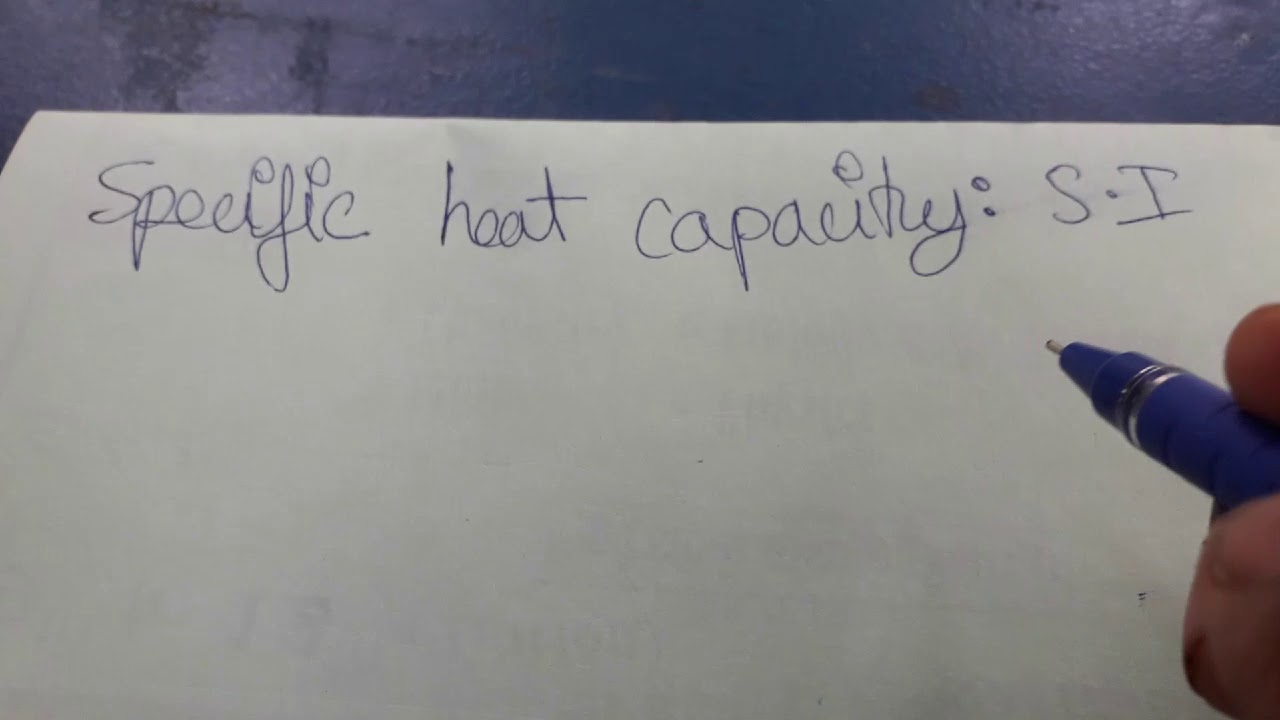 Specific heat capacity: S.I